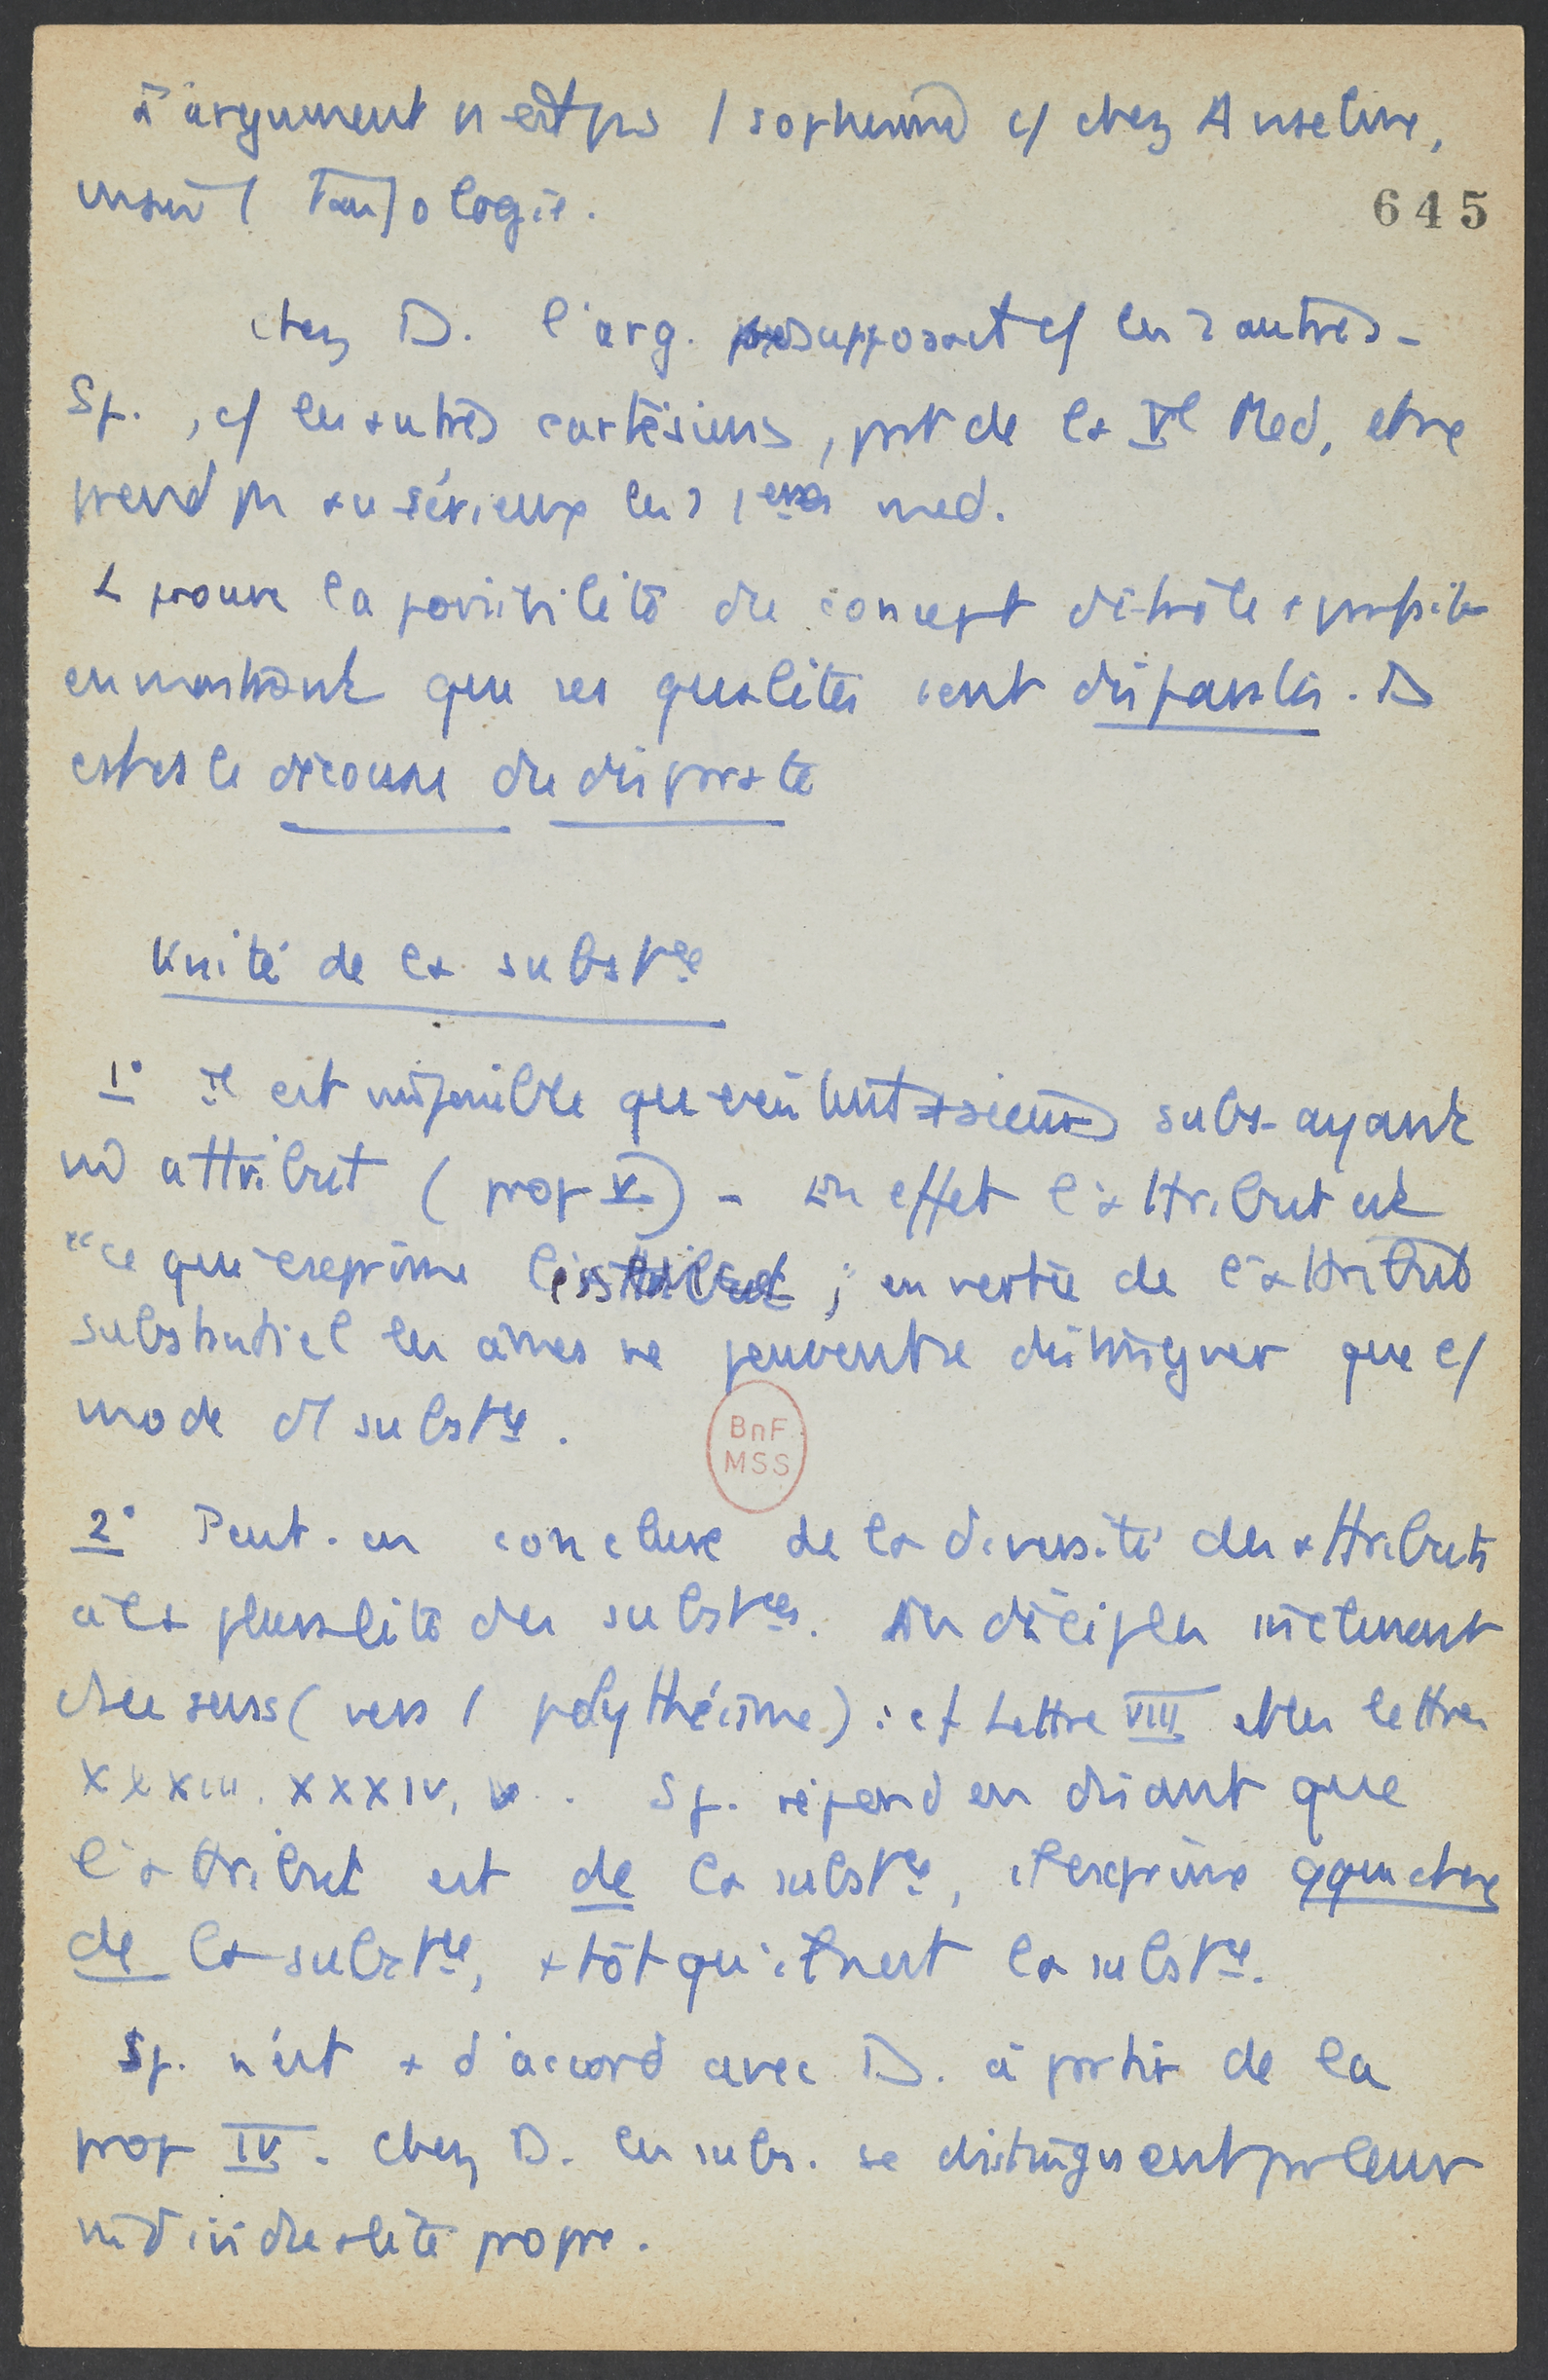 l'argument n'est pas / sophisme c/ chez Anselme,
mais / Tautologie.
645
chez D. l'arg. supposait c/ les 2 autres -
Sp., c/ les autres cartésiens, part de la Ve Med, et ne
prend pas au sérieux les 2 1eres med.
L prouve la possibilité du concept d'
en montrant que ses qualités sont disparates. D
est le discours du disparate
Unité de la substce
1° il est impossible que existent +sieurs subs. ayant
m attribut (prop V) - En effet l'attribut est
"ce qui exprime ; en vertu de l'attribut
substantiel les âmes ne peuvent se distinguer que c/
mode d'/ substce.
2° Peut-on conclure de la diversité des attributs
à la pluralité des substces. Des disciples inclinent
ds ce sens (vers / polythéisme) : cf Lettre VIII et les lettres
XXXIII. XXXIV, . Sp. répond en disant que
l'attribut est de la substce, il exprime qque chose
de la substce, +tôt qu'il n'est la substce.
Sp. n'est + d'accord avec D. à partir de la
prop IV. Chez D. les subs. se distinguent par leur
individualité propre.
BnF
MSS